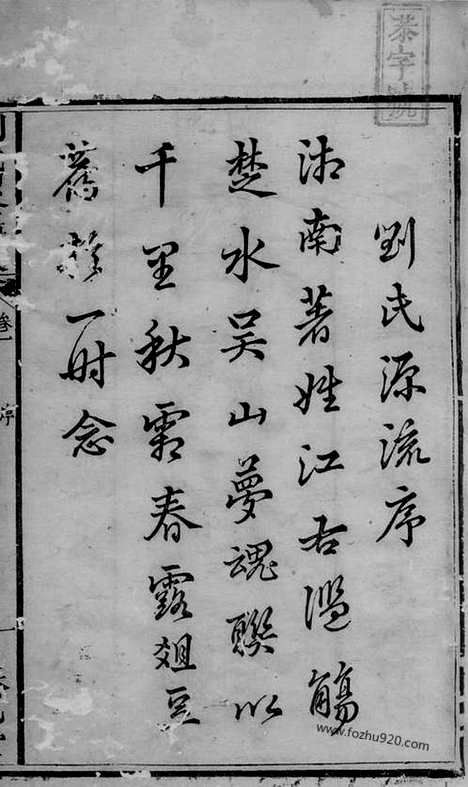 恭字號
劉氏源流序
沛南著姓江右濫觴
楚水吳山夢魂聯以
千里秋霜春露俎豆
一时念
卷一 序
www.fozhu920.com